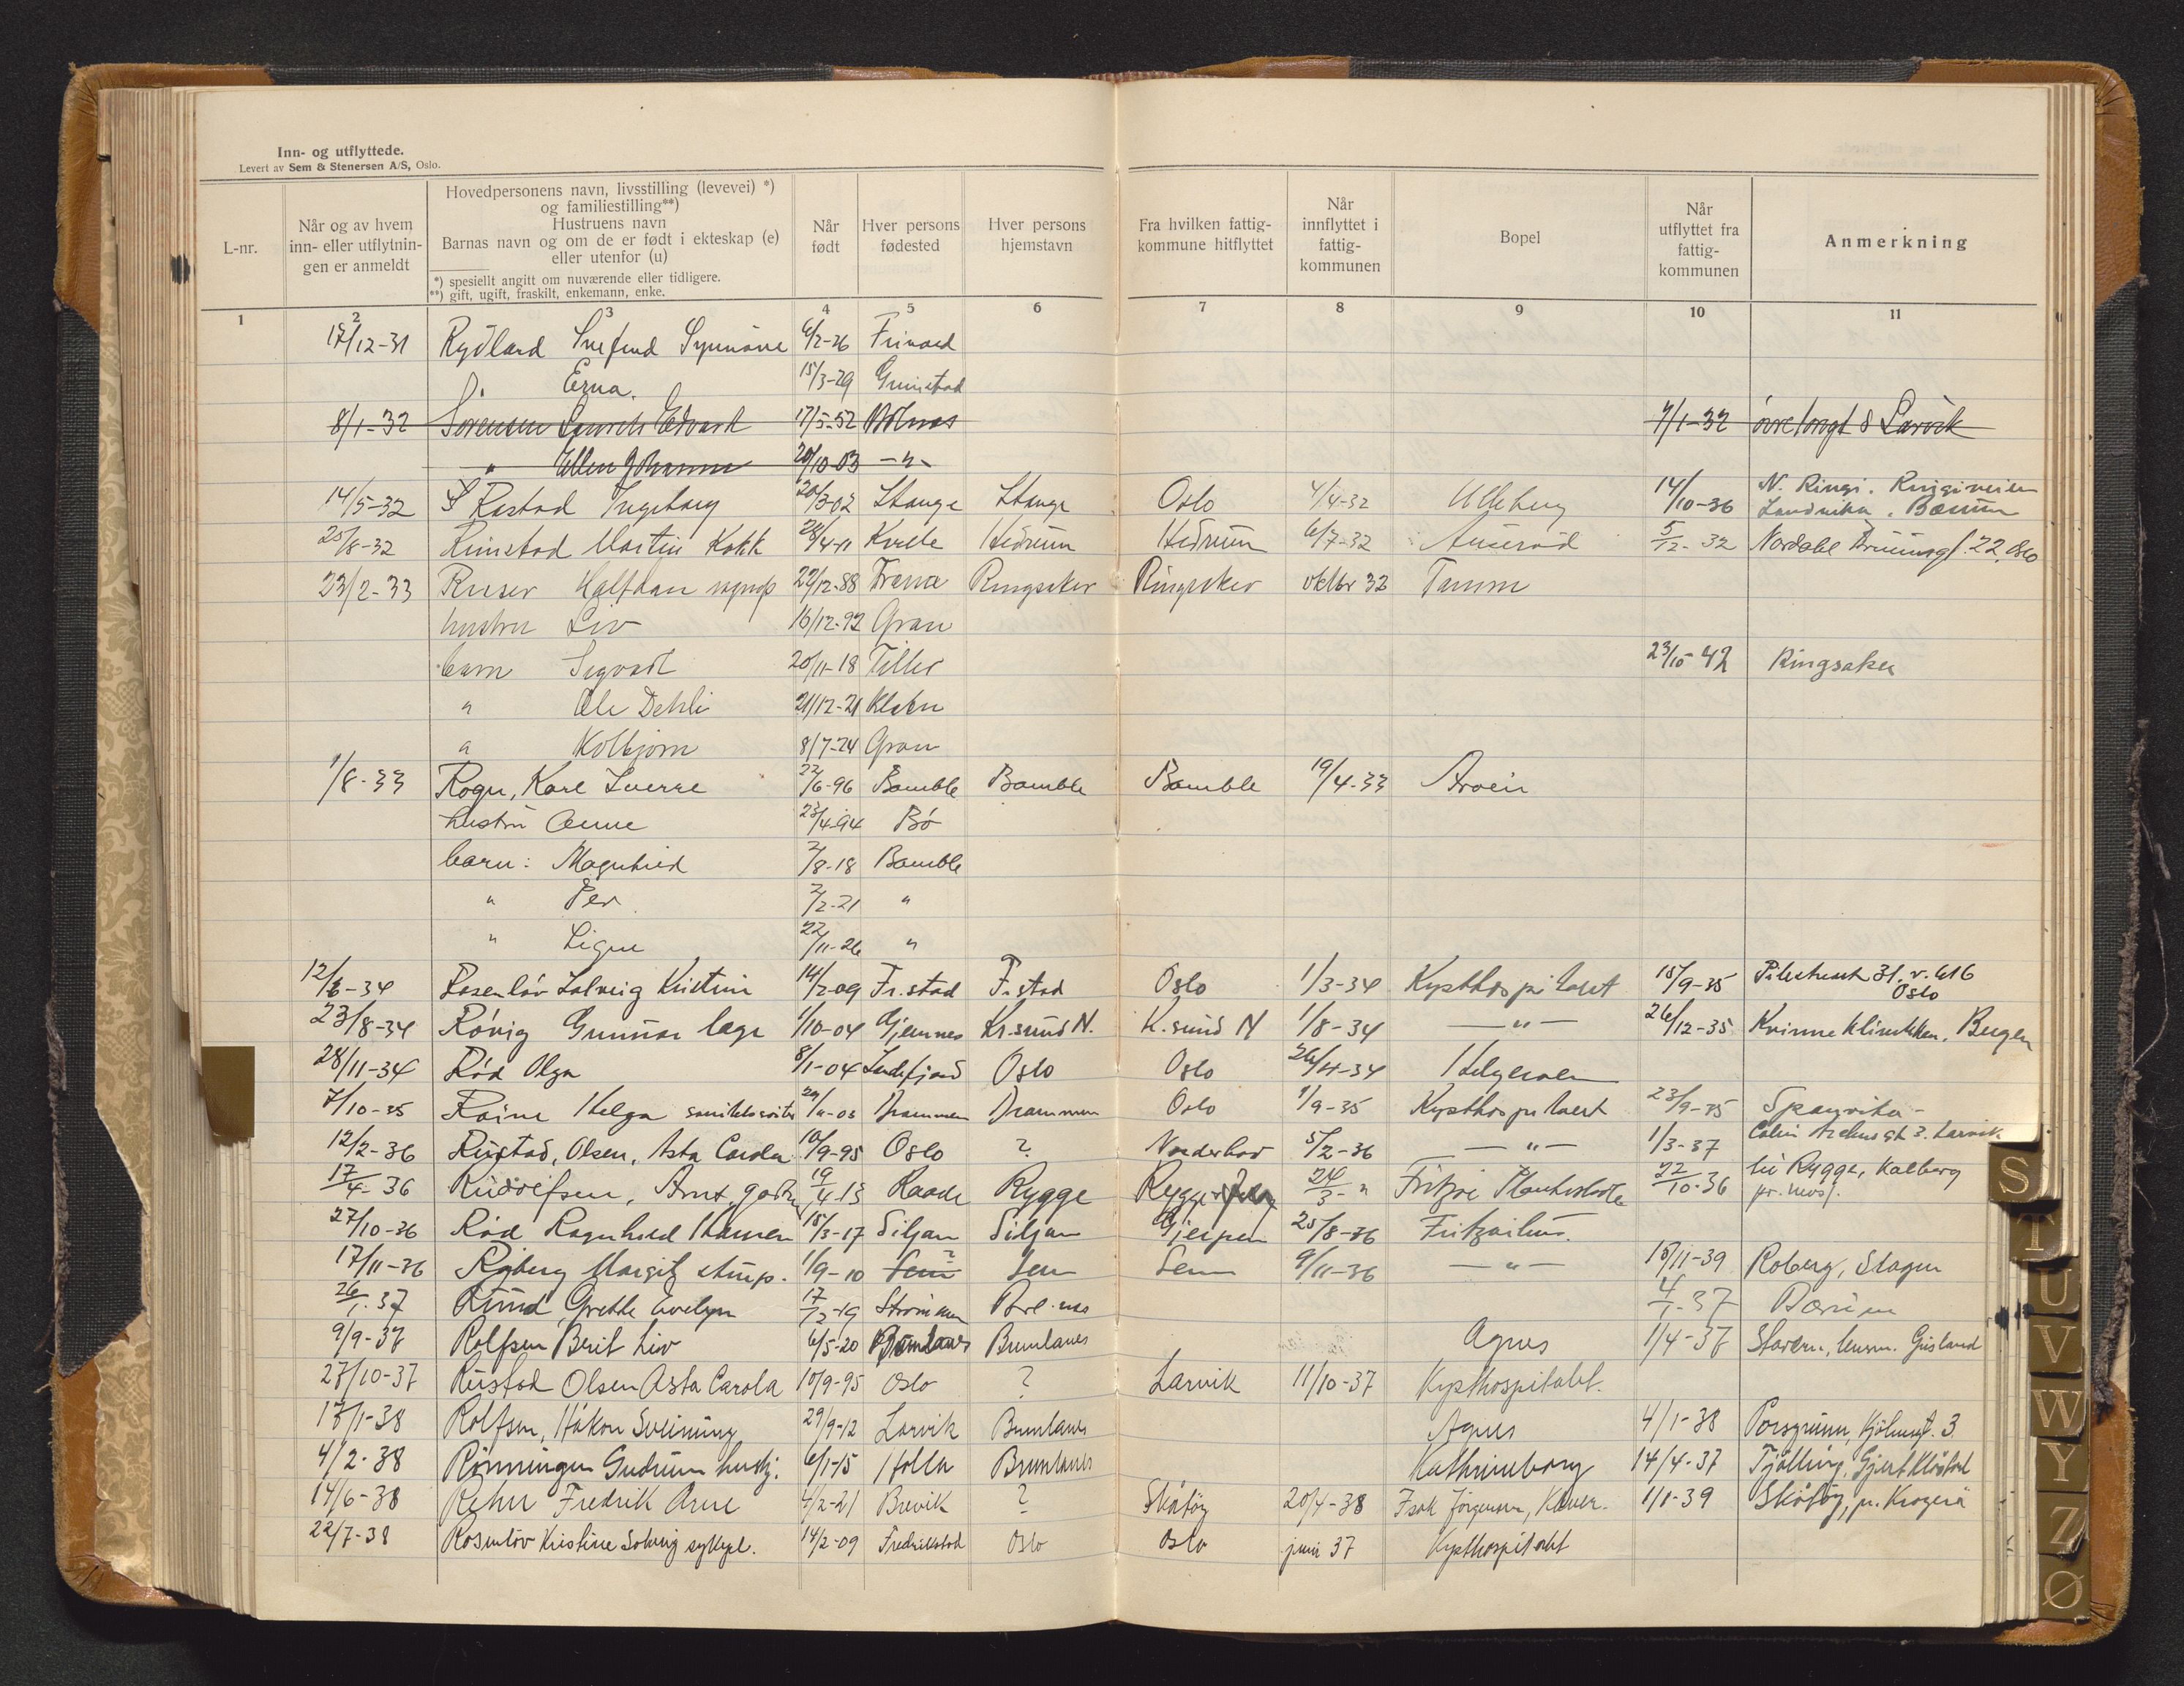 Inn- og utflyttede.
Levert av Sem & Stenersen A/S, Oslo.
L-nr.
Når og av hvem inn- eller utflytnin- gen er anmeldt
Hovedpersonens navn, livsstilling (levevei) *)
og familiestilling**)
Hustruens navn
Barnas navn og om de er født i ekteskap (e)
eller utenfor (u)
*) spesiellt angitt om nuværende eller tidligere.
**) gift, ugift, fraskilt, enkemann, enke.
Når født
Hver persons fødested
Hver persons hjemstavn
Fra hvilken fattig- kommune hitflyttet
Når innflyttet i fattig- kommunen
Bopel
Når utflyttet fra fattig- kommunen
Anmerkning
1 2 3 4 5 6 7 8 9 10 11
17/12-31 Rydland Synnøve 6/2-26
Erna. 15/3-29 Grimstad
8/1-32 Sørensen Edvard 17/5-52 7/1-32 Larvik
" Ellen Johanne 20/10-03 -"-
14/5-32 Rastad Ingeborg 20/3-02 Stange Stange Oslo 4/4-32 Ulleberg 14/10-36 N. Ringi. Ringiveien
Sandvika. Bærum
25/8-32 Rimstad Martin Kokk 28/4-11 Kvelle Hedrum Hedrum 6/7-32 Auserød 5/12-32 Nordahl Brunsgt. 22, Oslo
23/2-33 Ruser Halfdan 22/12-88 Træna Ringsaker Ringsaker oktbr 32 Tamm
hustru Liv 16/12-92 Gran
barn Sigvart 20/11-18 Tiller 23/10-42 Ringsaker
" Ole Dehli 21/12-21 Klæbu
" Kolbjørn 8/7-24 Gran
1/8-33 Rogn, Karl Sverre 22/6-96 Bamble Bamble Bamble 19/4-33 Arøen
hustru Anne 23/4-94 Bø
barn: Magnhild 2/8-18 Bamble
" Per 2/2-21 "
" Signe 22/11-26 "
12/6-34 Rosenløv Solveig Kristine 14/2-09 Fr.stad F.stad Oslo 1/3-34 Kysthospitalet 15/9-35 Pilestredet 31, v. 616
Oslo
23/8-34 Røvig Gunnar læge 1/10-04 Gjemnes Kr.sund N. K.sund N 1/8-34 -"- 26/12-35 Kvinneklinikken. Bergen
28/11-34 Rød Olga 8/1-04 Sandefjord Oslo Oslo Helgeroen
7/10-35 Røine Helga Drammen Drammen Oslo 1/9-35 Kysthospitalet 23/9-35 Spangvika-
12/2-36 Rustad, Olsen, Asta Carola 10/9-95 Oslo ? Norderhov 5/2-36 -"- 1/3-37 Colin Archersgt 3. Larvik
17/4-36 Rudolfsen, Arnt, 19/4-13 Raade Rygge Rygge 24/3-" Fritzøe Planteskole 22/10-36 til Rygge, Kalberg
pr. Moss.
27/10-36 Rød Ragnhild 15/3-17 Siljan Siljan Gjerpen 25/8-36 Fritzøehus.
17/11-36 Røberg Margit stuep. 1/9-10 Sem ? Sem Sem 9/11-36 -"- 15/11-39 Roberg, Slagen
26/1-37 Rund, Grethe Evelyn 17/12-19 Strømmen 4/1-37 Bærum
9/9-37 Rolfsen Berit Liv 6/5-20 Brunlanes Brunlanes Agnes 1/4-37 Stavern, Gusland
27/10-37 Rustad Olsen Asta Carola 10/9-95 Oslo ? Larvik 11/10-37 Kysthospitalet.
15/1-38 Rolfsen, Håkon Sveinung 29/9-12 Larvik Brunlanes Agnes 4/1-38 Porsgrunn, 3
4/2-38 Rønningen Gudrun hushj. 6/1-15 Holla Brunlanes Kathrineborg 14/4-37 Tjølling, Gjert Klåstad
14/6-38 Rehn Fredrik Arne 4/2-21 Brevik ? Skåtøy 20/4-38 Isak Jørgensen, 1/1-39 Skåtøy, pr. Kragerø
22/7-38 Rosenløv Kristine Solveig sykepl. 14/2-09 Fredrikstad Oslo Oslo juni 37 Kysthospitalet
S
T
U
V
W
Y
Z
Ø